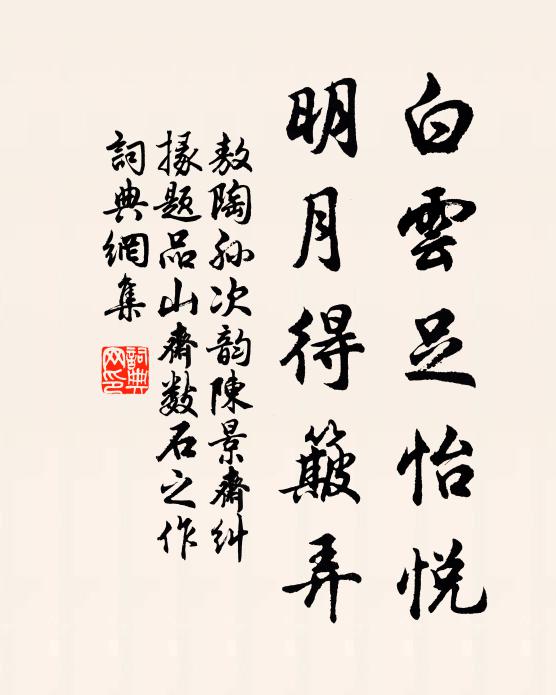 白雲足怡悅
明月得簸弄
敖陶孫次韵陳景齋糾
掾題品山齋數石之作
詞典網集
詞典網印